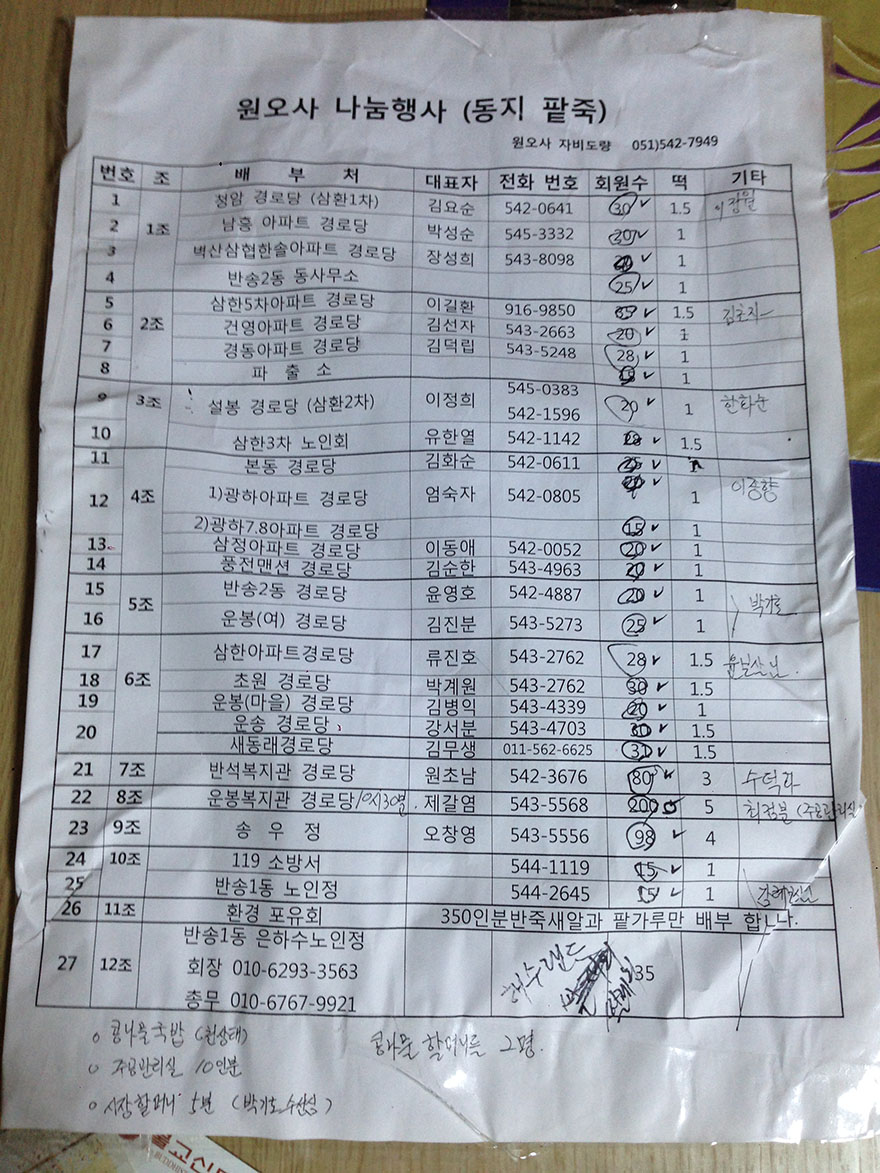 원오사 나눔행사 (동지 팥죽)
원오사 자비도량 051)542-7949
번호 조 배 부 처 대표자 전화 번호 회원수 떡 기타
1 1조 청암 경로당 (삼환1차) 김요순 542-0641 30 1.5 이정원
2 남흥 아파트 경로당 박성순 545-3332 20 1
3 벽산삼협한솔아파트 경로당 장성희 543-8098 1
4 반송2동 동사무소 25 1
5 2조 삼한5차아파트 경로당 이길환 916-9850 1.5
6 건영아파트 경로당 김선자 543-2663 20 1
7 경동아파트 경로당 김덕립 543-5248 28 1
8 파 출 소 1
9 3조 설봉 경로당 (삼환2차) 이정희 545-0383 20 1 한화순
542-1596
10 삼한3차 노인회 유한열 542-1142 1.5
11 4조 본동 경로당 김화순 542-0611
12 1)광하아파트 경로당 엄숙자 542-0805 1 이송향
2)광하7.8아파트 경로당 15 1
13 삼정아파트 경로당 이동애 542-0052 20 1
14 풍전맨션 경로당 김순한 543-4963 20 1
15 5조 반송2동 경로당 윤영호 542-4887 20 1 박기호
16 운봉(여) 경로당 김진분 543-5273 25 1
17 6조 삼한아파트경로당 류진호 543-2762 28 1.5 윤보살님
18 초원 경로당 박계원 543-2762 30 1.5
19 운봉(마을) 경로당 김병익 543-4339 20 1
20 운송 경로당 강서분 543-4703 30 1.5
새동래경로당 김무생 011-562-6625 31 1.5
21 7조 반석복지관 경로당 원초남 542-3676 80 3 수덕화
22 8조 운봉복지관 경로당/10시30분. 제갈염 543-5568 200 5
23 9조 송 우 정 오창영 543-5556 98 4
24 10조 119 소방서 544-1119 15 1
25 반송1동 노인정 544-2645 15 1
26 11조 환경 포유회 350인분반죽새알과 팥가루만 배부 합니다.
27 12조 반송1동 은하수노인정 35
회장 010-6293-3563
총무 010-6767-9921
콩나물국밥 (천상태) 콩나물 할머니들 2명.
주공관리실 10인분
시장할머니 5분 (박기호 수산심)